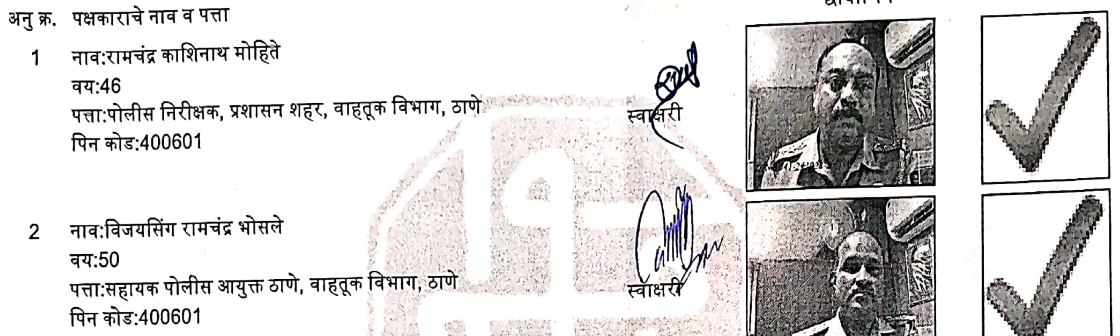 अनु क्र. पक्षकाराचे नाव व पत्ता
1 नाव:रामचंद्र काशिनाथ मोहिते
वय:46
पत्ता:पोलीस निरीक्षक, प्रशासन शहर, वाहतूक विभाग, ठाणे
पिन कोड:400601
स्वाक्षरी
2 नाव:विजयसिंग रामचंद्र भोसले
वय:50
पत्ता:सहायक पोलीस आयुक्त ठाणे, वाहतूक विभाग, ठाणे
पिन कोड:400601
स्वाक्षरी